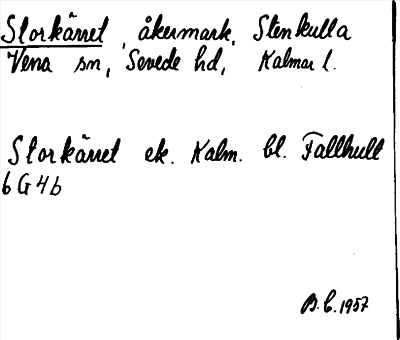 Storkärret, åkermark, Stenkulla
Vena sn, Sevede hd, Kalmar l.
Storkärret ek. Kalm. bl. Fallhult
6G4b
B.C. 1957